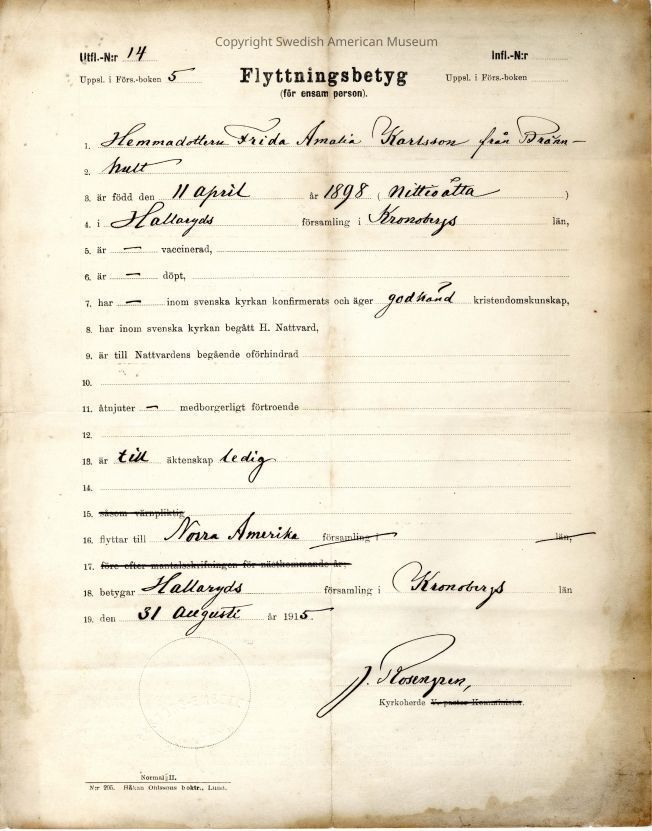 Copyright Swedish American Museum
Utfl.-N:r 14
Infl.-N:r
Uppsl. i Förs.-boken 5
Uppsl. i Förs.-boken
Flyttningsbetyg
(för ensam person).
1. Hemmadottern Frida Amalia Karlsson från Bränn-
2. hult
3. är född den 11 april år 1898 (Nittioåtta)
4. i Hallaryds församling i Kronobergs län,
5. är — vaccinerad,
6. är — döpt,
7. har — inom svenska kyrkan konfirmerats och äger godkänd kristendomskunskap,
8. har inom svenska kyrkan begått H. Nattvard,
9. är till Nattvardens begående oförhindrad
10.
11. åtnjuter — medborgerligt förtroende
12.
13. är till äktenskap ledig
14.
15. såsom värnpliktig
16. flyttar till Norra Amerika församling i län,
17. före efter mantalsskrifningen för nästkommande år;
18. betygar Hallaryds församling i Kronobergs län
19. den 31 Augusti år 1915.
J. Rosengren,
Kyrkoherde V. pastor Komminister.
Normal II.
N:r 205. Håkan Ohlssons boktr., Lund.